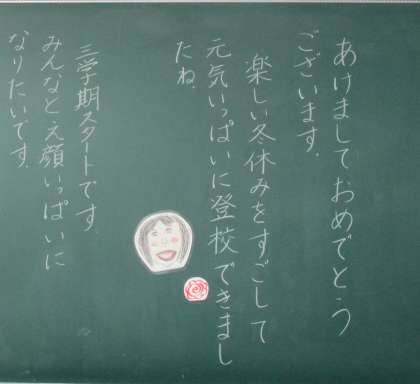 あけましておめでとう
ございます。
楽しい冬休みをすごして
元気いっぱいに登校できまし
たね。
三学期スタートです。
みんなとえ顔いっぱいに
なりたいです。